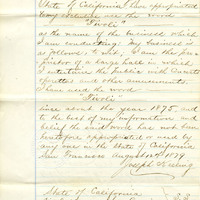 State of California, I have appropriated
use the word
"Tivoli"
as the name of the business which
I am conducting: My business is
as follows to wit, I am the pro-
prietor of a large hall in which
I entertain the public with Concerts
operettas and other amusements.
I have used the word
"Tivoli"
since about the year 1875, and
to the best of my information and
belief the said word has not been
heretofore appropriated or used by
any one in the State of California
San Francisco August 1879
Joseph Kreling
State of California